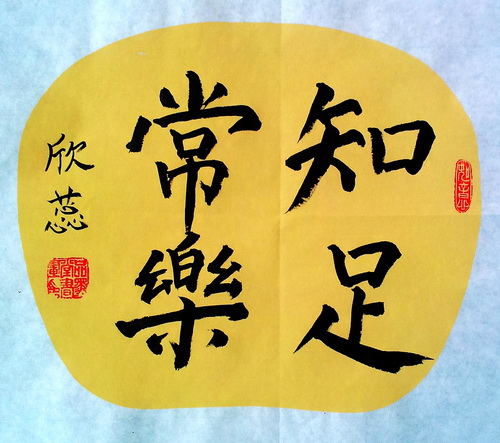 知足
常樂
欣蕊